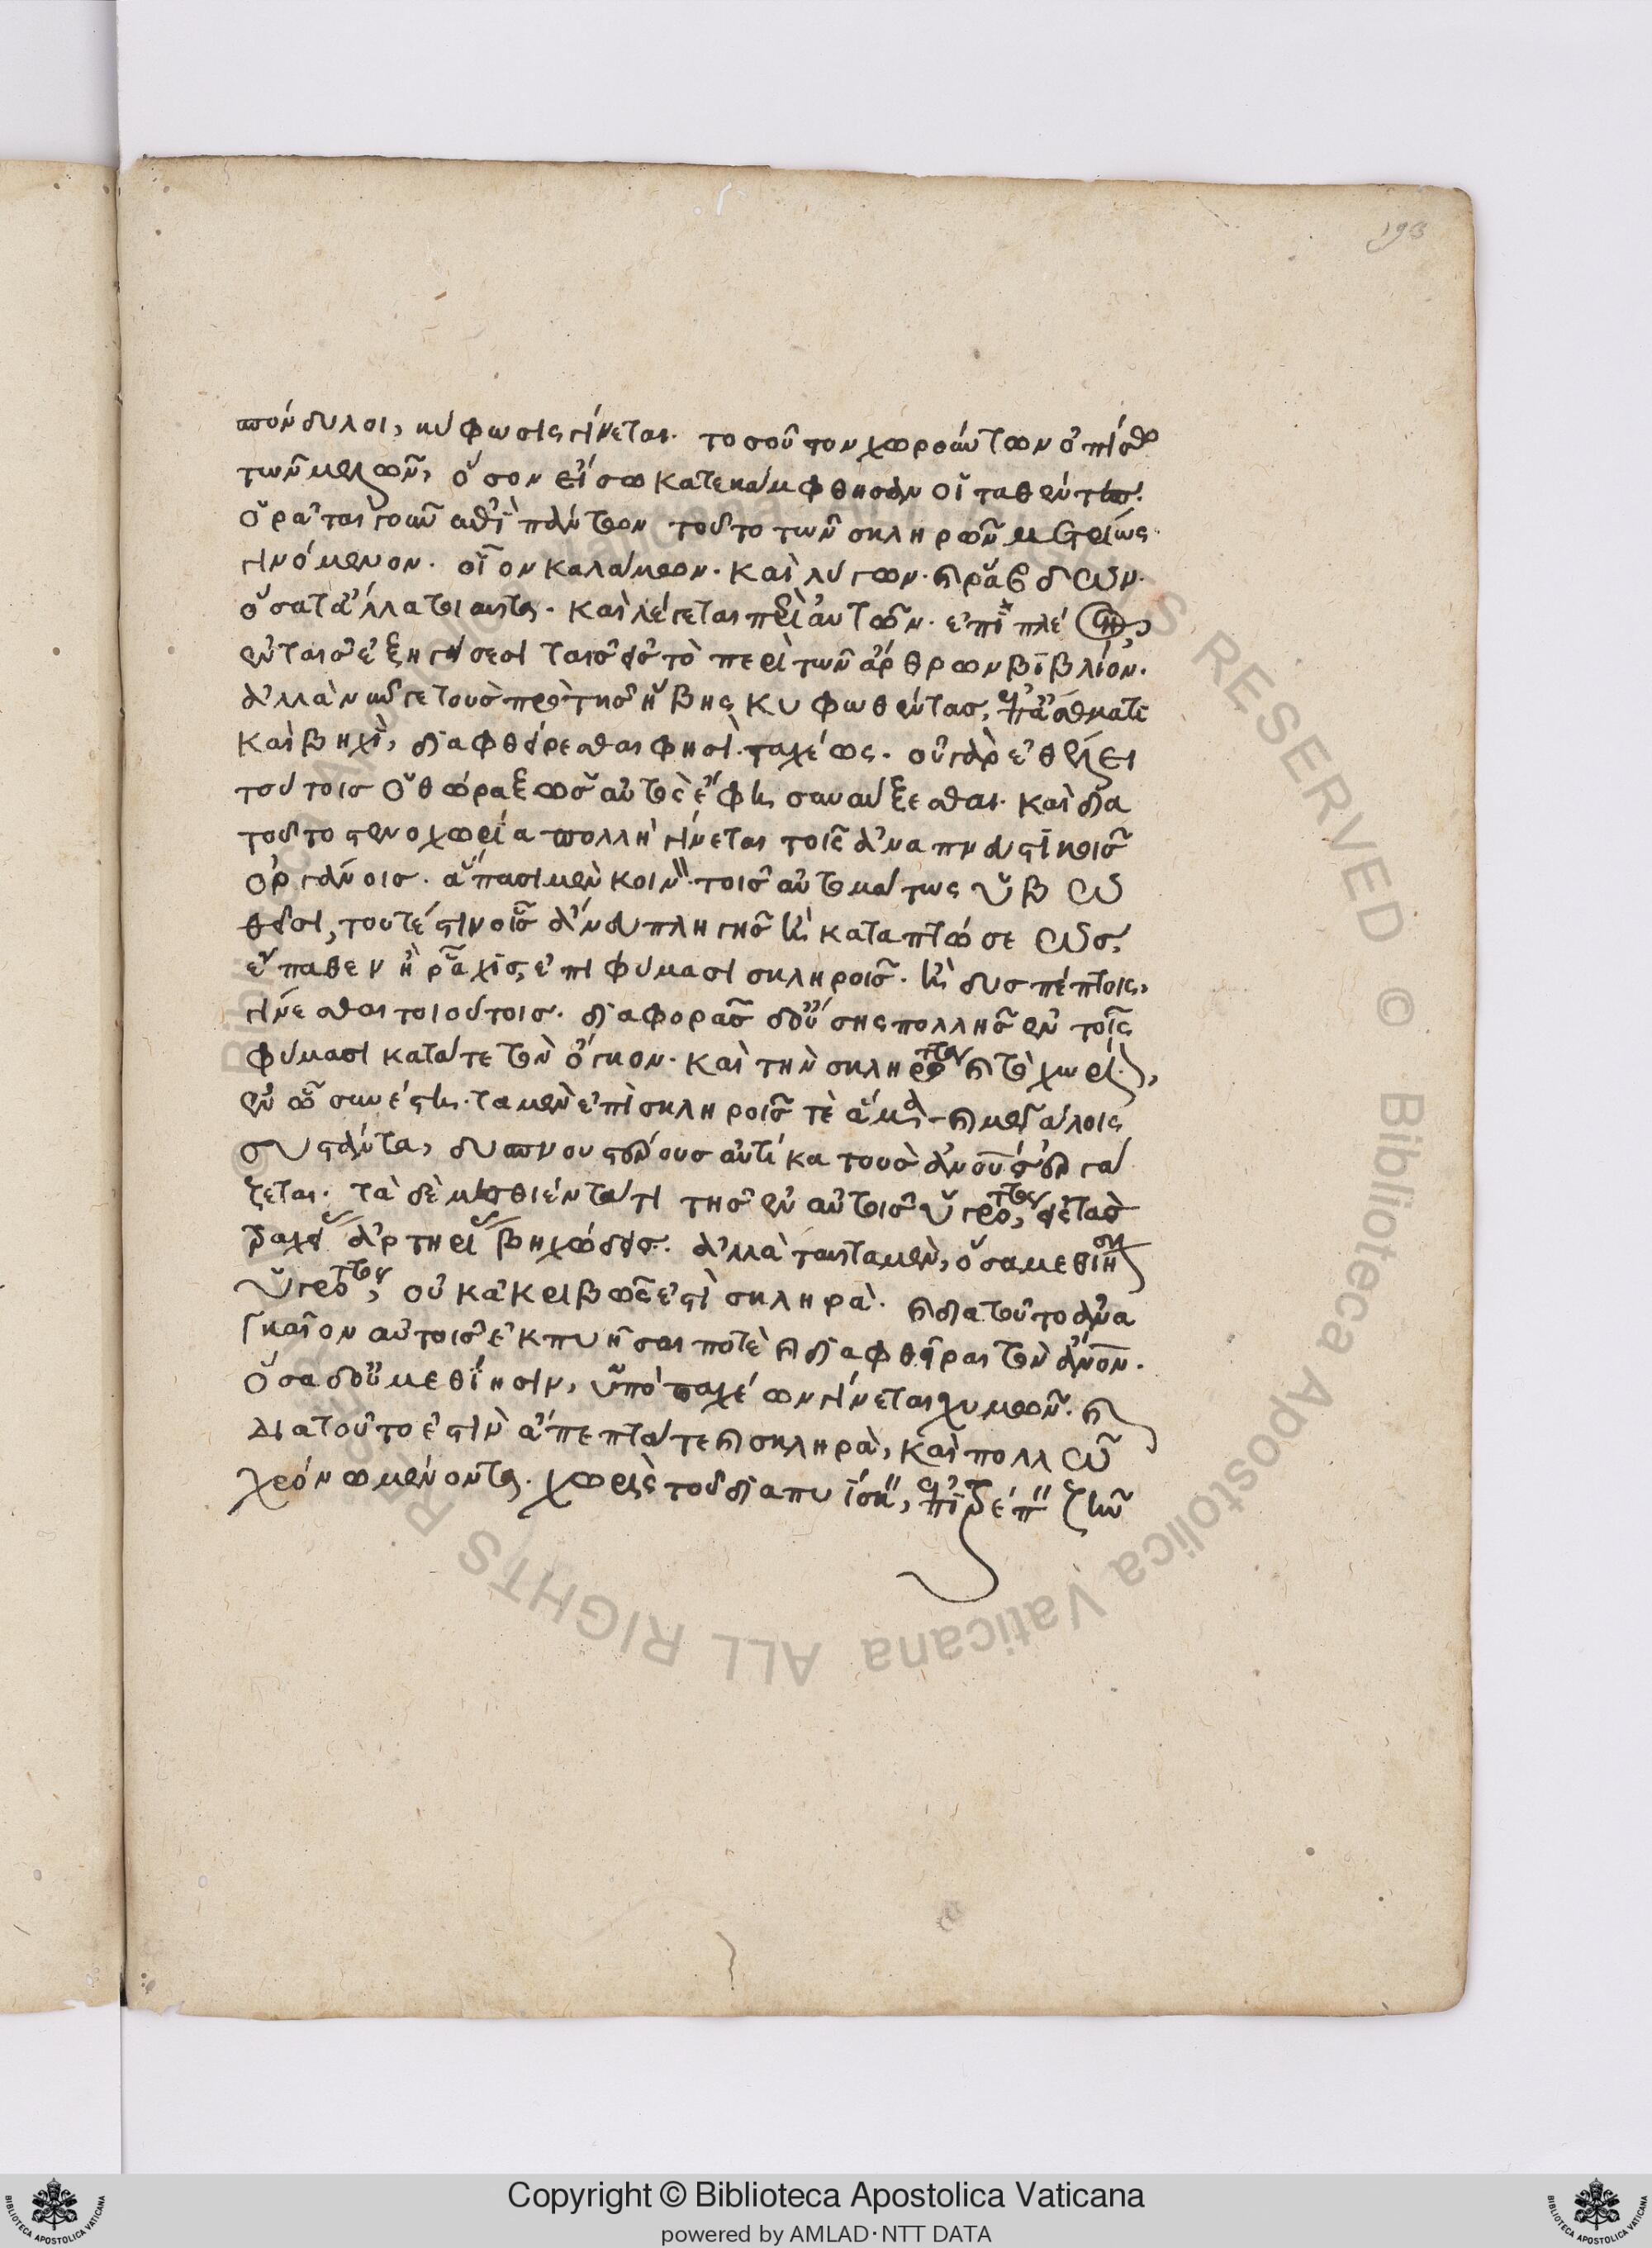 193
σπόνδυλοι, κύφωσις γίνεται· τοσοῦτον χωρσάντων ὀπίσθ
τῶν μελῶν, ὅσον εἴσω κατεκάμφθησαν οἱ ταθέντες·
ὁρᾶται γοῦν ἀεὶ πάντων τοῦτο τῶν σκληρῶν μετρίως
γινόμενον· οἷον καλάμων· καὶ λύγων· καὶ ῥάβδων·
ὅσα τ' ἄλλα τοιαῦτα· καὶ λέγεται περὶ αὐτῶν· ἐπὶ πλέ
ἐν ταῖς ἐξηγήσεσι ταῖς εἰς τὸ περὶ τῶν ἄρθρων βιβλίον·
ἀλλὰ νῦν γε τοὺς πρὸ τῆς ἥβης κυφωθέντας, ἀπ' ἄσθματι
καὶ βηχὶ, διαφθείρεσθαι φησὶ ταχέως· οὐ γὰρ ἐθέλει
τούτοις ὁ θώραξ ὡς αὐτὸς ἔφη συναύξεσθαι· καὶ διὰ
τοῦτο στενοχωρία πολλὴ γίνεται τοῖς ἀναπνευστικοῖς
ὀργάνοις· ἅπασι μὲν κοιν τοῖς αὐτομάτως ὑβω
θεῖσι, τουτέστιν οἷς ἄνευ πληγῆς καὶ καταπτώσεως,
ἔπαθεν ἡ ῥάχις, ἐπὶ φύμασι σκληροῖς· καὶ δυσπέπτοις,
γίνεσθαι τοιούτοις· διαφορᾶς δ' οὔσης πολλῆς ἐν τοῖς
φύμασι κατά τε τὸν ὄγκον· καὶ τὴν σκληρότητα καὶ τὸ χωρί,
ἐν ᾧ συνέστη· τὰ μὲν ἐπὶ σκληροῖς τὲ ἅμα καὶ μεγάλοις
συστάντα, δυσπνουστέρους αὐτίκα τοὺς ἀνους ἐργά
ζεται· τὰ δὲ μεθιέντα τι τῆς ἐν αὐτοῖς ὑγρότητος, εἰς τὰς
τραχείας ἀρτηρίας βηχώδεις· ἀλλὰ ταῦτα μὲν, ὅσα μεθίησι
ὑγρότητος, οὐκ ἀκριβῶς ἐστὶ σκληρά· καὶ διὰ τοῦτο ἀνα
γκαῖον αὐτοῖς ἐκπυῆσαι ποτὲ καὶ διαφθεῖραι τὸν ἀνον·
ὅσα δ' οὐ μεθίησιν, ὑπὸ παχέων γίνεται χυμῶν· καὶ
διὰ τοῦτο ἐστὶν ἄπεπτά τε καὶ σκληρὰ, καὶ πολλῶ
χρόνω μένοντα· χωρὶς τοῦ διαπυΐσκ, ἐπιτρέπ ζῆν